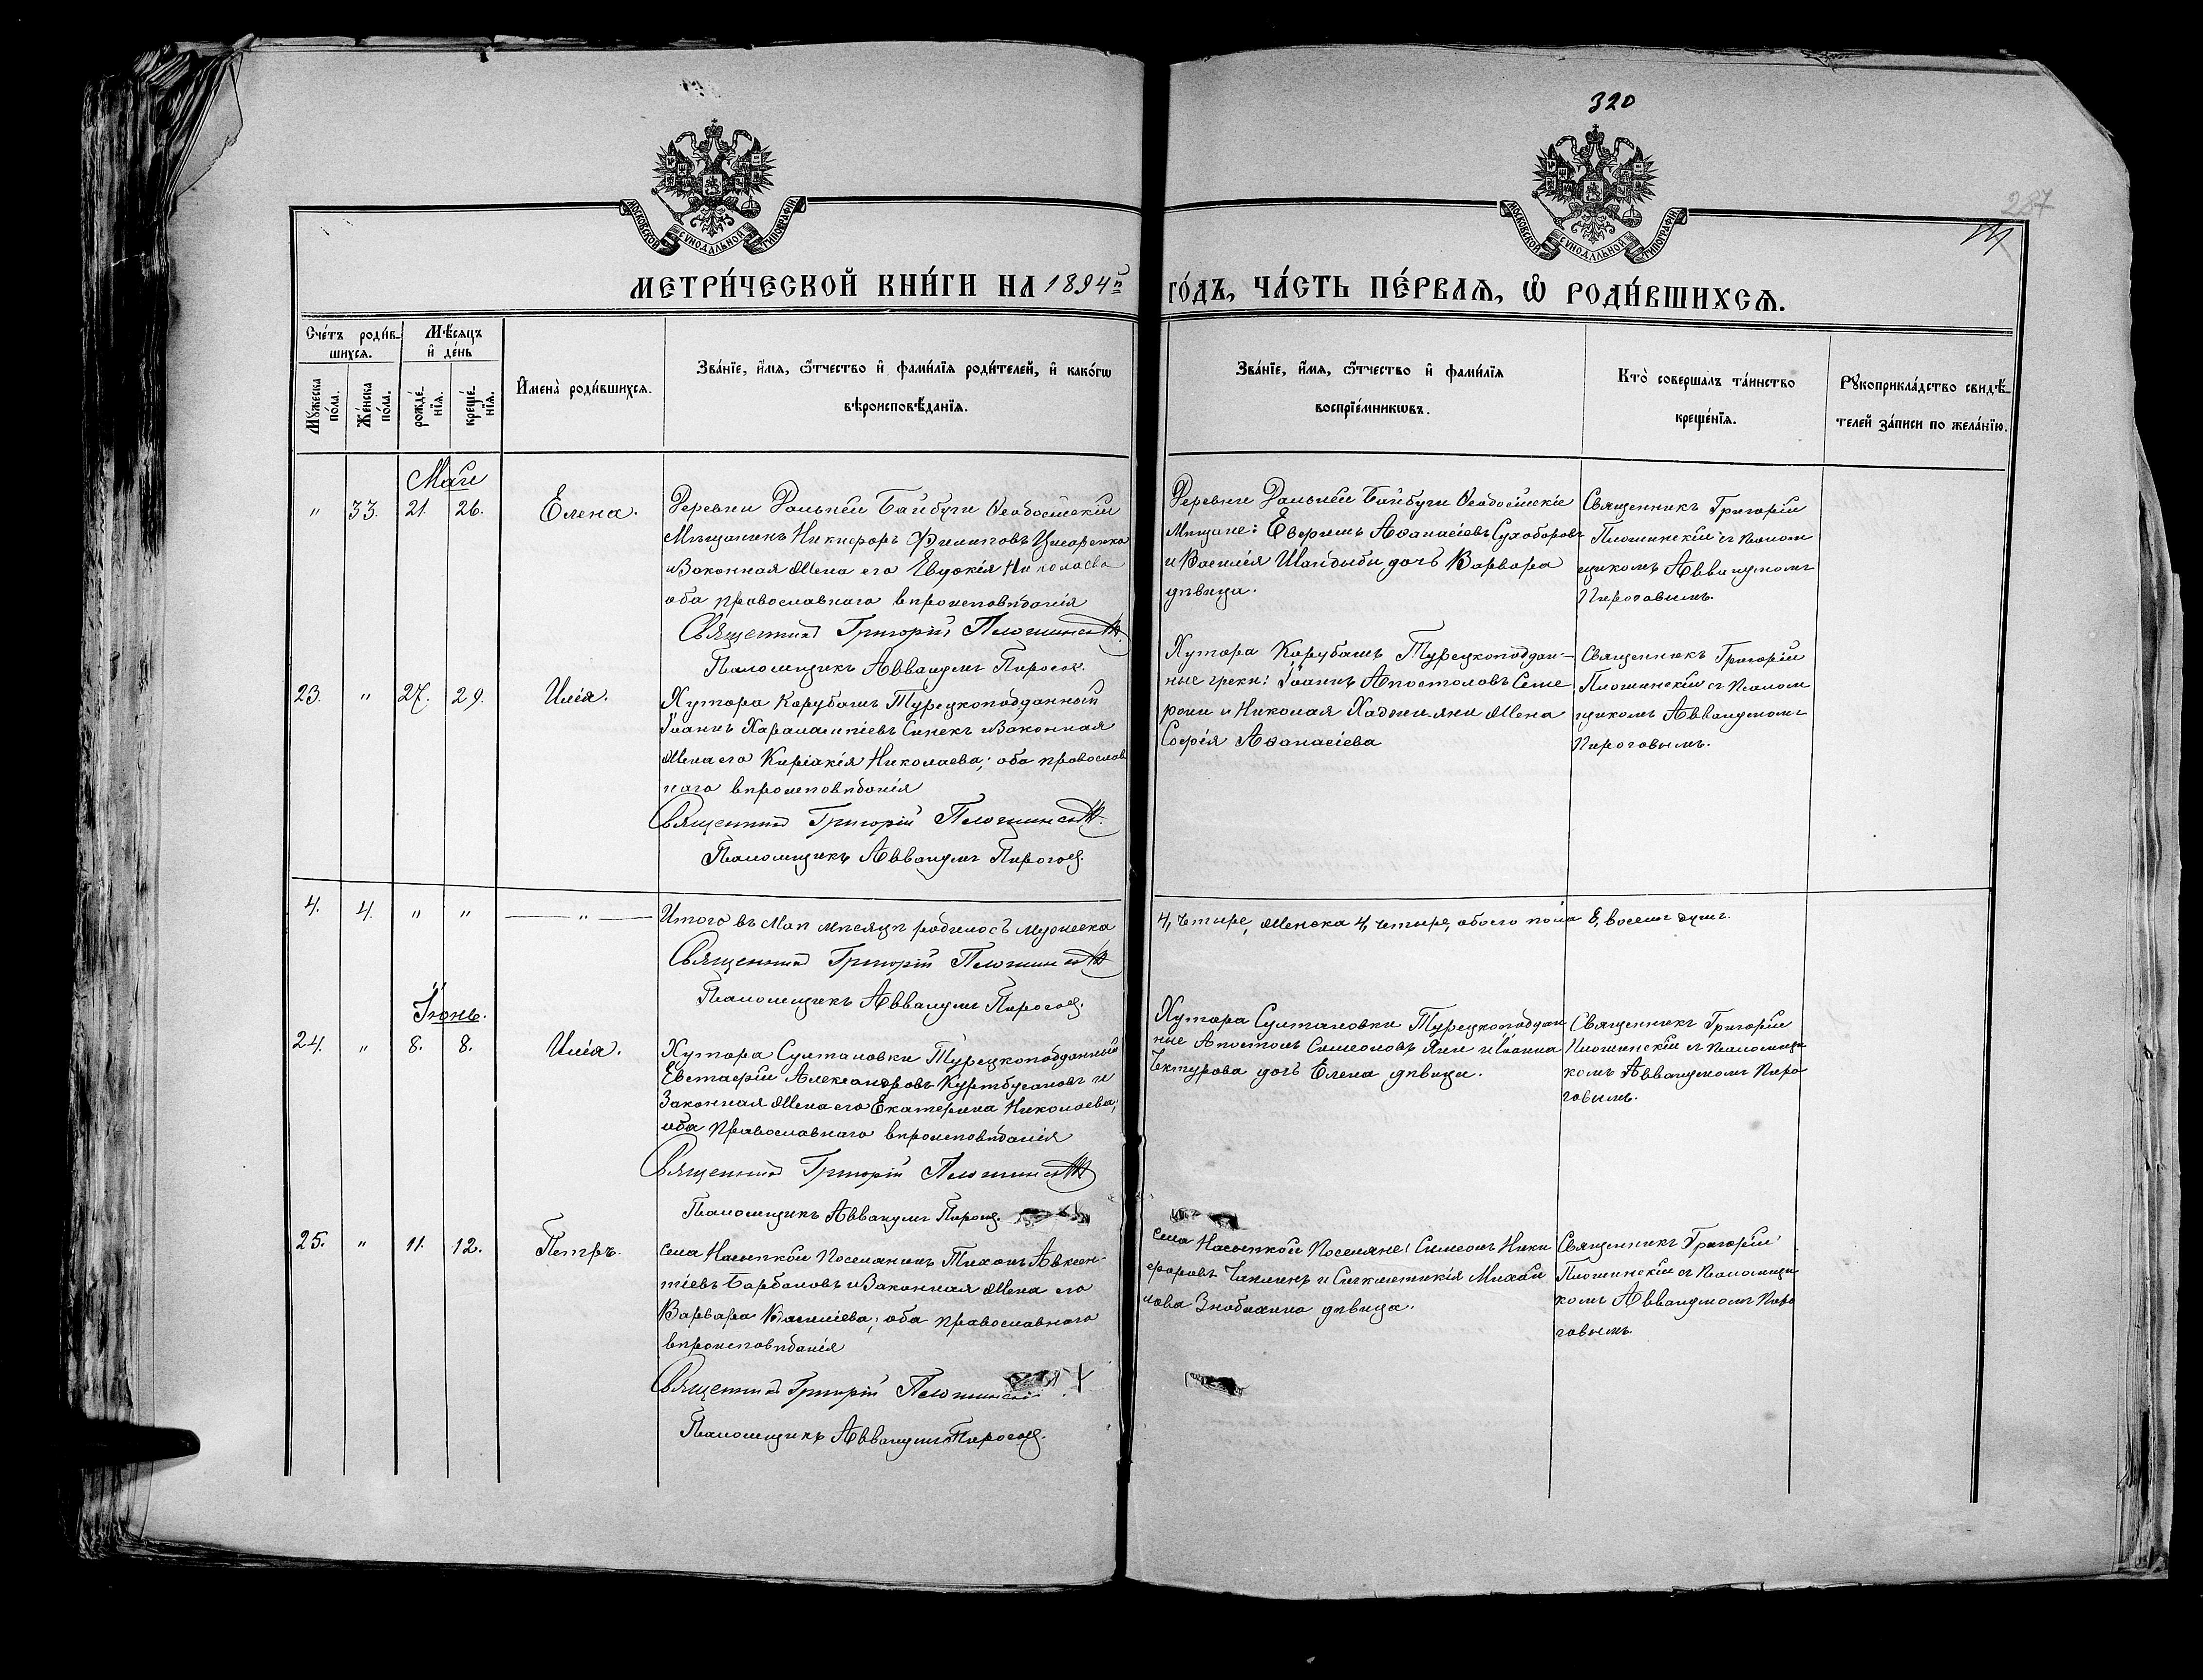 320
287
МОСКОВСКОЙ СѴНОДАЛЬНОЙ ТИПОГРАФІИ
МОСКОВСКОЙ СѴНОДАЛЬНОЙ ТИПОГРАФІИ
МЕТРИ́ЧЕСКОЙ КНИ́ГИ НА 1894й ГО́ДЪ, ЧА́СТЬ ПЕ́РВАЯ, Ѡ РОДИ́ВШИХСЯ.
Сче́тъ роди́в-
шихся.
Мѣ́сяцъ
и де́нь
Мꙋжеска по́ла.
Же́нска по́ла.
рожде́нїя.
креще́нїя.
Имена̀ роди́вшихся.
Зва́нїе, и́мя, ѻ́тчество и фами́лїя роди́телей, и како́гѡ
вѣроисповѣ́данїя.
Зва́нїе, и́мя, ѻ́тчество и фами́лїя
воспрїе́мникѡвъ.
Кто̀ соверша́лъ та́инство
креще́нїя.
Рꙋкоприкла́дство свидѣ́-
телей за́писи по жела́нїю.
Май
" 33. 21. 26. Елена.
Деревни Дальней Байбуги Ѳеодосійскій
Мѣщанинъ Никифоръ Филиповъ
и Законная Жена его Евдокія Николаева
оба православнаго вѣроисповѣданія
Священник Григорій Плошинскій
Псаломщикъ Аввакумъ Пирогов.
Деревни Дальней Байбуги Ѳеодосійскіе
Мѣщане: Аѳанасіевъ Сухоборов
и Василія дочь Варвара
дѣвица.
Священникъ Григорій
Плошинскій съ Псалом
щикомъ Аввакумомъ
Пироговымъ.
23. " 27. 29. Илія.
Хутора Карубашъ Турецкоподданный
Іоаннъ Харалампіевъ Синекъ и Законная
Жена его Киріакія Николаева; оба православ
наго вѣроисповѣданія
Священник Григорій Плошинскій
Псаломщикъ Аввакумъ Пирогов.
Хутора Карубашъ Турецкоподдан-
ные греки: Іоаннъ Апостоловъ
и Николая Хаджи-яни Жена
Софія Аѳанасіева
Священникъ Григорій
Плошинскій съ Псалом
щикомъ Аввакумомъ
Пироговымъ.
4. 4. " " — " —
Итого въ Маѣ мѣсяцѣ родилось мужеска
4, четыре, Женска 4, четыре, обоего пола 8, восемь душъ.
Священник Григорій Плошинскій
Псаломщикъ Аввакумъ Пирогов.
Іюнь.
24. " 8. 8. Илія.
Хутора Султановки Турецкоподданный
Евстафій Александровъ Куртбусановъ и
Законная Жена его Екатерина Николаева;
оба Православнаго вѣроисповѣданія
Священник Григорій Плошинскій
Псаломщикъ Аввакумъ Пирогов.
Хутора Султановки Турецкоподдан
ные Апостолъ Симеоновъ Яни и Іоанна
Чектурова дочь Елена дѣвица.
Священникъ Григорій
Плошинскій съ Псаломщи
комъ Аввакумомъ Пиро
говымъ.
25. " 11. 12. Петръ.
Села Насыпкой Поселянинъ Тихонъ Авксен-
тіевъ Барбановъ и Законная Жена его
Варвара Василіева; оба православнаго
вѣроисповѣданія
Священник Григорій Плошинскій
Псаломщикъ Аввакумъ Пирогов.
Села Насыпкой Поселяне: Симеонъ Ники
форовъ и Михай
лова Знобихина дѣвица.
Священникъ Григорій
Плошинскій съ Псаломщи
комъ Аввакумомъ Пиро
говымъ.